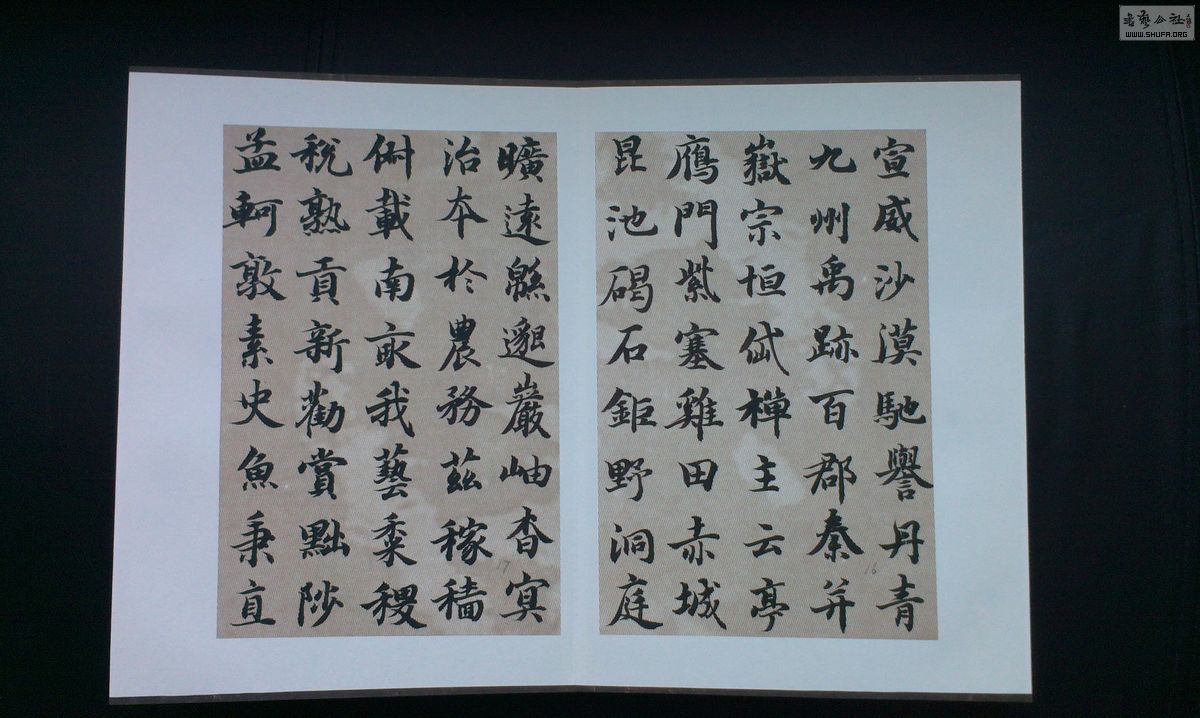 宣威沙漠馳譽丹青
九州禹跡百郡秦并
嶽宗恒岱禪主云亭
鴈門紫塞雞田赤城
昆池碣石鉅野洞庭
曠遠緜邈巖岫杳冥
治本於農務茲稼穡
俶載南畝我藝黍稷
稅熟貢新勸賞黜陟
孟軻敦素史魚秉直
16
17
書藝公社
WWW.SHUFA.ORG